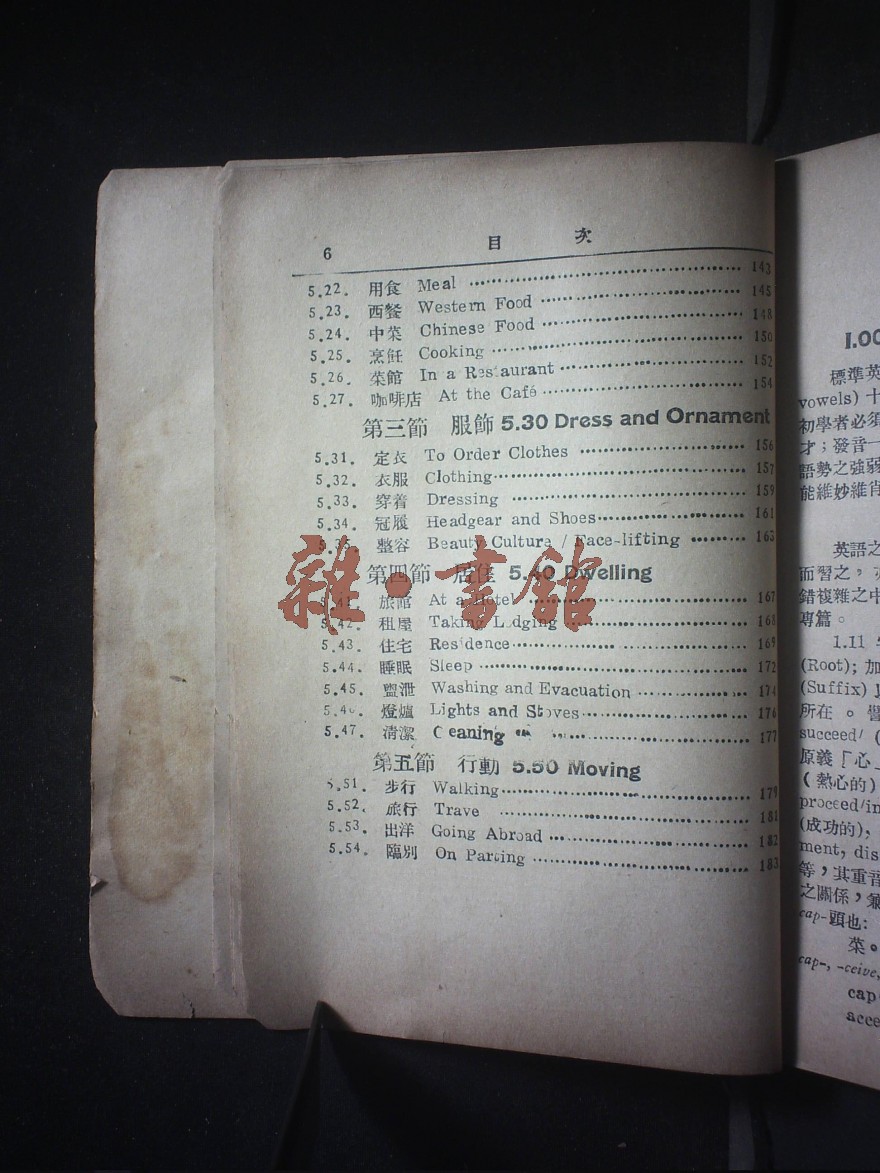 6 目 次
5.22. 用食 Meal 143
5.23. 西餐 Western Food 145
5.24. 中菜 Chinese Food 148
5.25. 烹飪 Cooking 150
5.26. 菜館 In a Restaurant 152
5.27. 咖啡店 At the Café 154
第三節 服飾 5.30 Dress and Ornament
5.31. 定衣 To Order Clothes 156
5.32. 衣服 Clothing 157
5.33. 穿着 Dressing 159
5.34. 冠履 Headgear and Shoes 161
5.35. 整容 Beauty Culture / Face-lifting 163
第四節 居住 5.40 Dwelling
5.41. 旅館 At a Hotel 167
5.42. 租屋 Taking Lodging 168
5.43. 住宅 Residence 169
5.44. 睡眠 Sleep 172
5.45. 盥泄 Washing and Evacuation 174
5.46. 燈爐 Lights and Stoves 176
5.47. 清潔 Cleaning 177
第五節 行動 5.50 Moving
5.51. 步行 Walking 179
5.52. 旅行 Trave 181
5.53. 出洋 Going Abroad 182
5.54. 臨別 On Parting 183
雜·書館
1.00
標準英
vowels) 十
初學者必須
才；發音一
語勢之強弱
能維妙維肖
英語之
而習之，
錯複雜之中
專篇。
1.11
(Root); 加
(Suffix)
所在。譬
succeed/
原義「心」
(熱心的)
proceed/in
(成功的),
ment, dis
等，其重音
之關係，兼
cap-頭也:
菜。
cap-, -ceive,
cap
acce